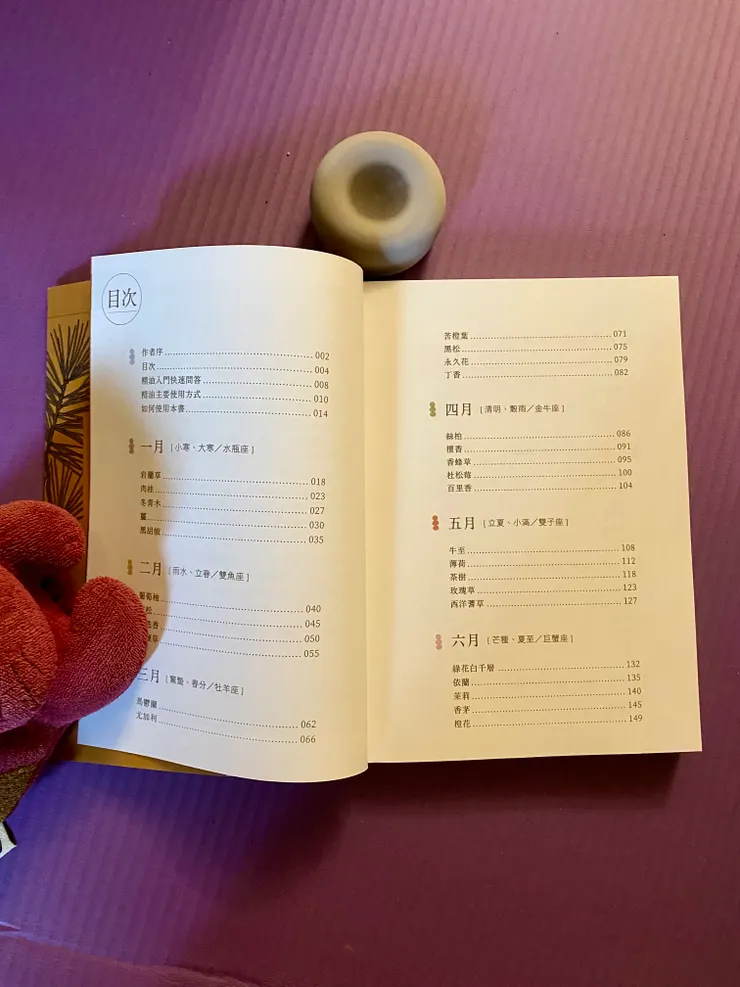 目次
作者序 002
目次 004
精油入門快速問答 008
精油主要使用方式 010
如何使用本書 014
一月 [小寒、大寒／水瓶座]
岩蘭草 018
肉桂 023
冬青木 027
薑 030
黑胡椒 035
二月 [雨水、立春／雙魚座]
葡萄柚 040
松 045
香 050
草 055
三月 [驚蟄、春分／牡羊座]
馬鬱蘭 062
尤加利 066
苦橙葉 071
黑松 075
永久花 079
丁香 082
四月 [清明、穀雨／金牛座]
絲柏 086
檀香 091
香蜂草 095
杜松莓 100
百里香 104
五月 [立夏、小滿／雙子座]
牛至 108
薄荷 112
茶樹 118
玫瑰草 123
西洋蓍草 127
六月 [芒種、夏至／巨蟹座]
綠花白千層 132
依蘭 135
茉莉 140
香茅 145
橙花 149